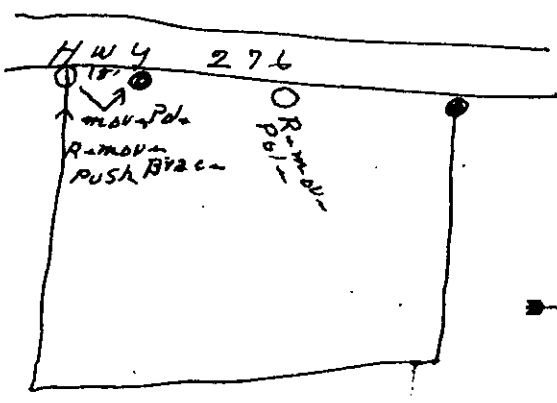 HWY 276
15'
move Pole
Remove
Push Brace
Remove
Pole